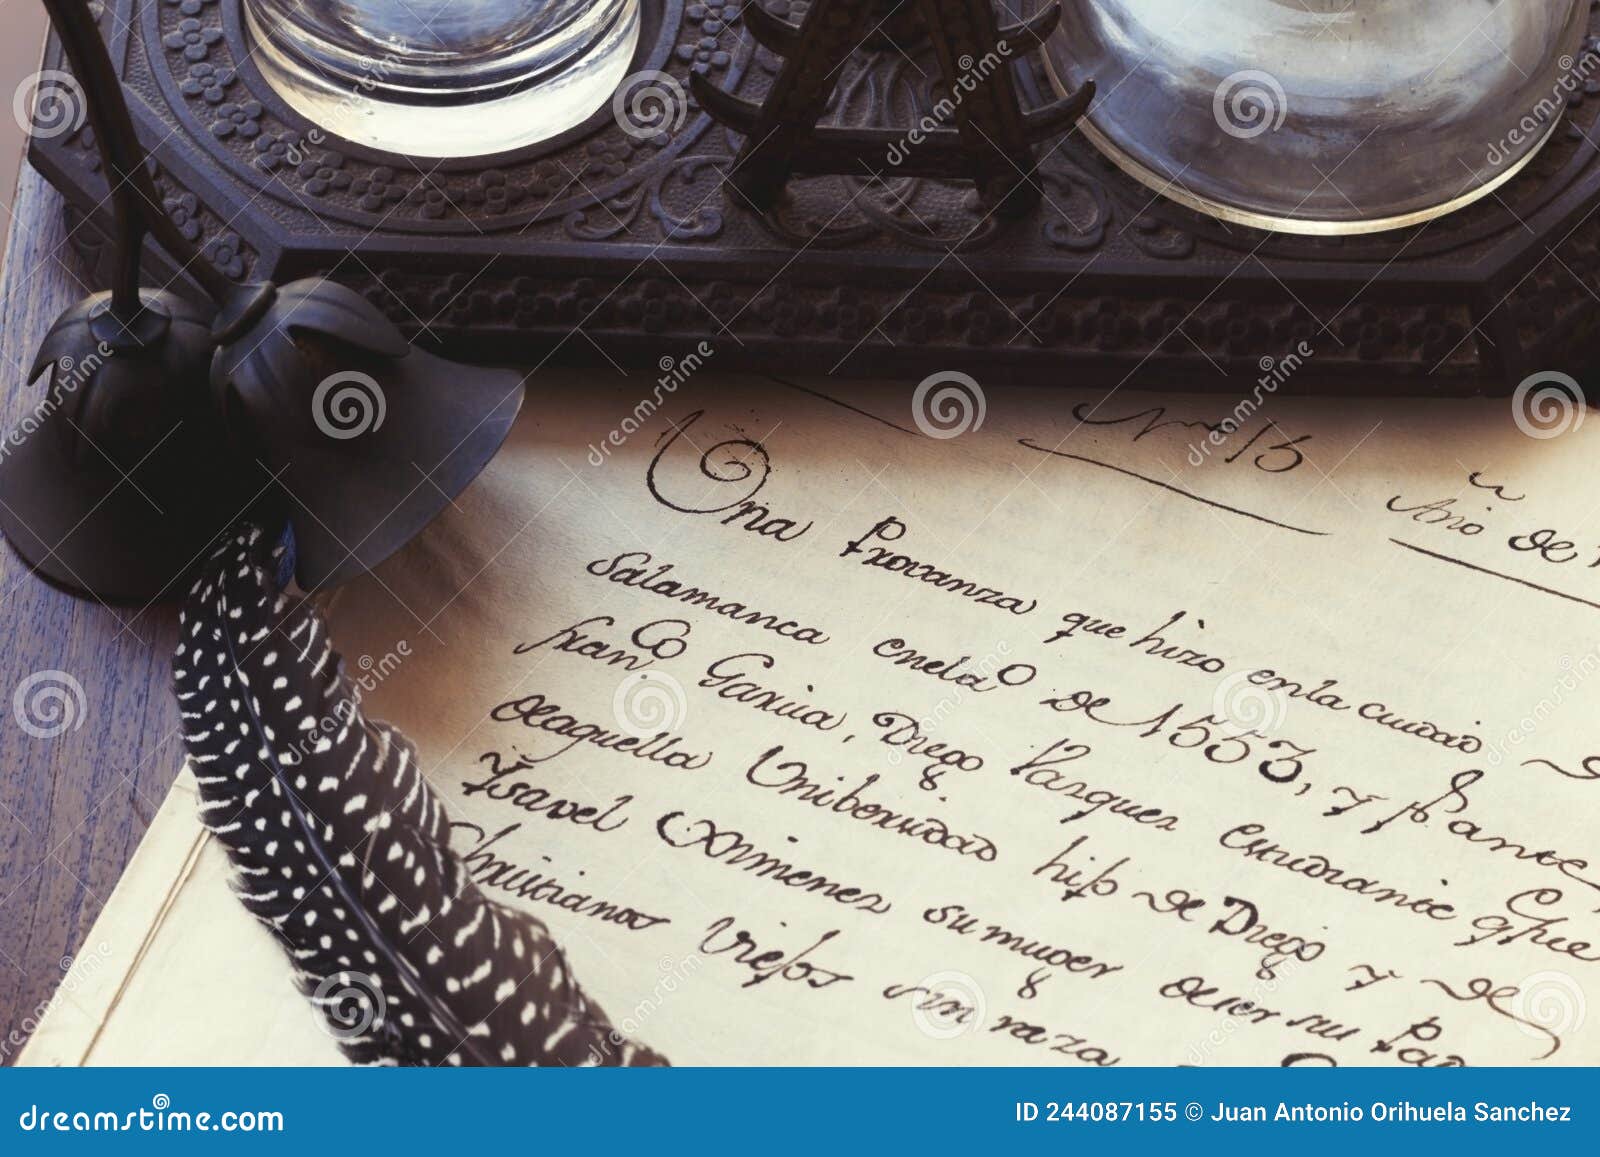 Nro 13
Año de
Una Provanza que hizo en la ciudad de
Salamanca enel aº de 1553, y ſſ ante
Franco Garcia, Diego Vazquez estudiante q fue
de aquella Unibersidad hijo de Diego y de
Ysavel Ximenez su muger de ser sus Pad
Christianos Viejos sin raza
dreamstime.com
ID 244087155 © Juan Antonio Orihuela Sanchez